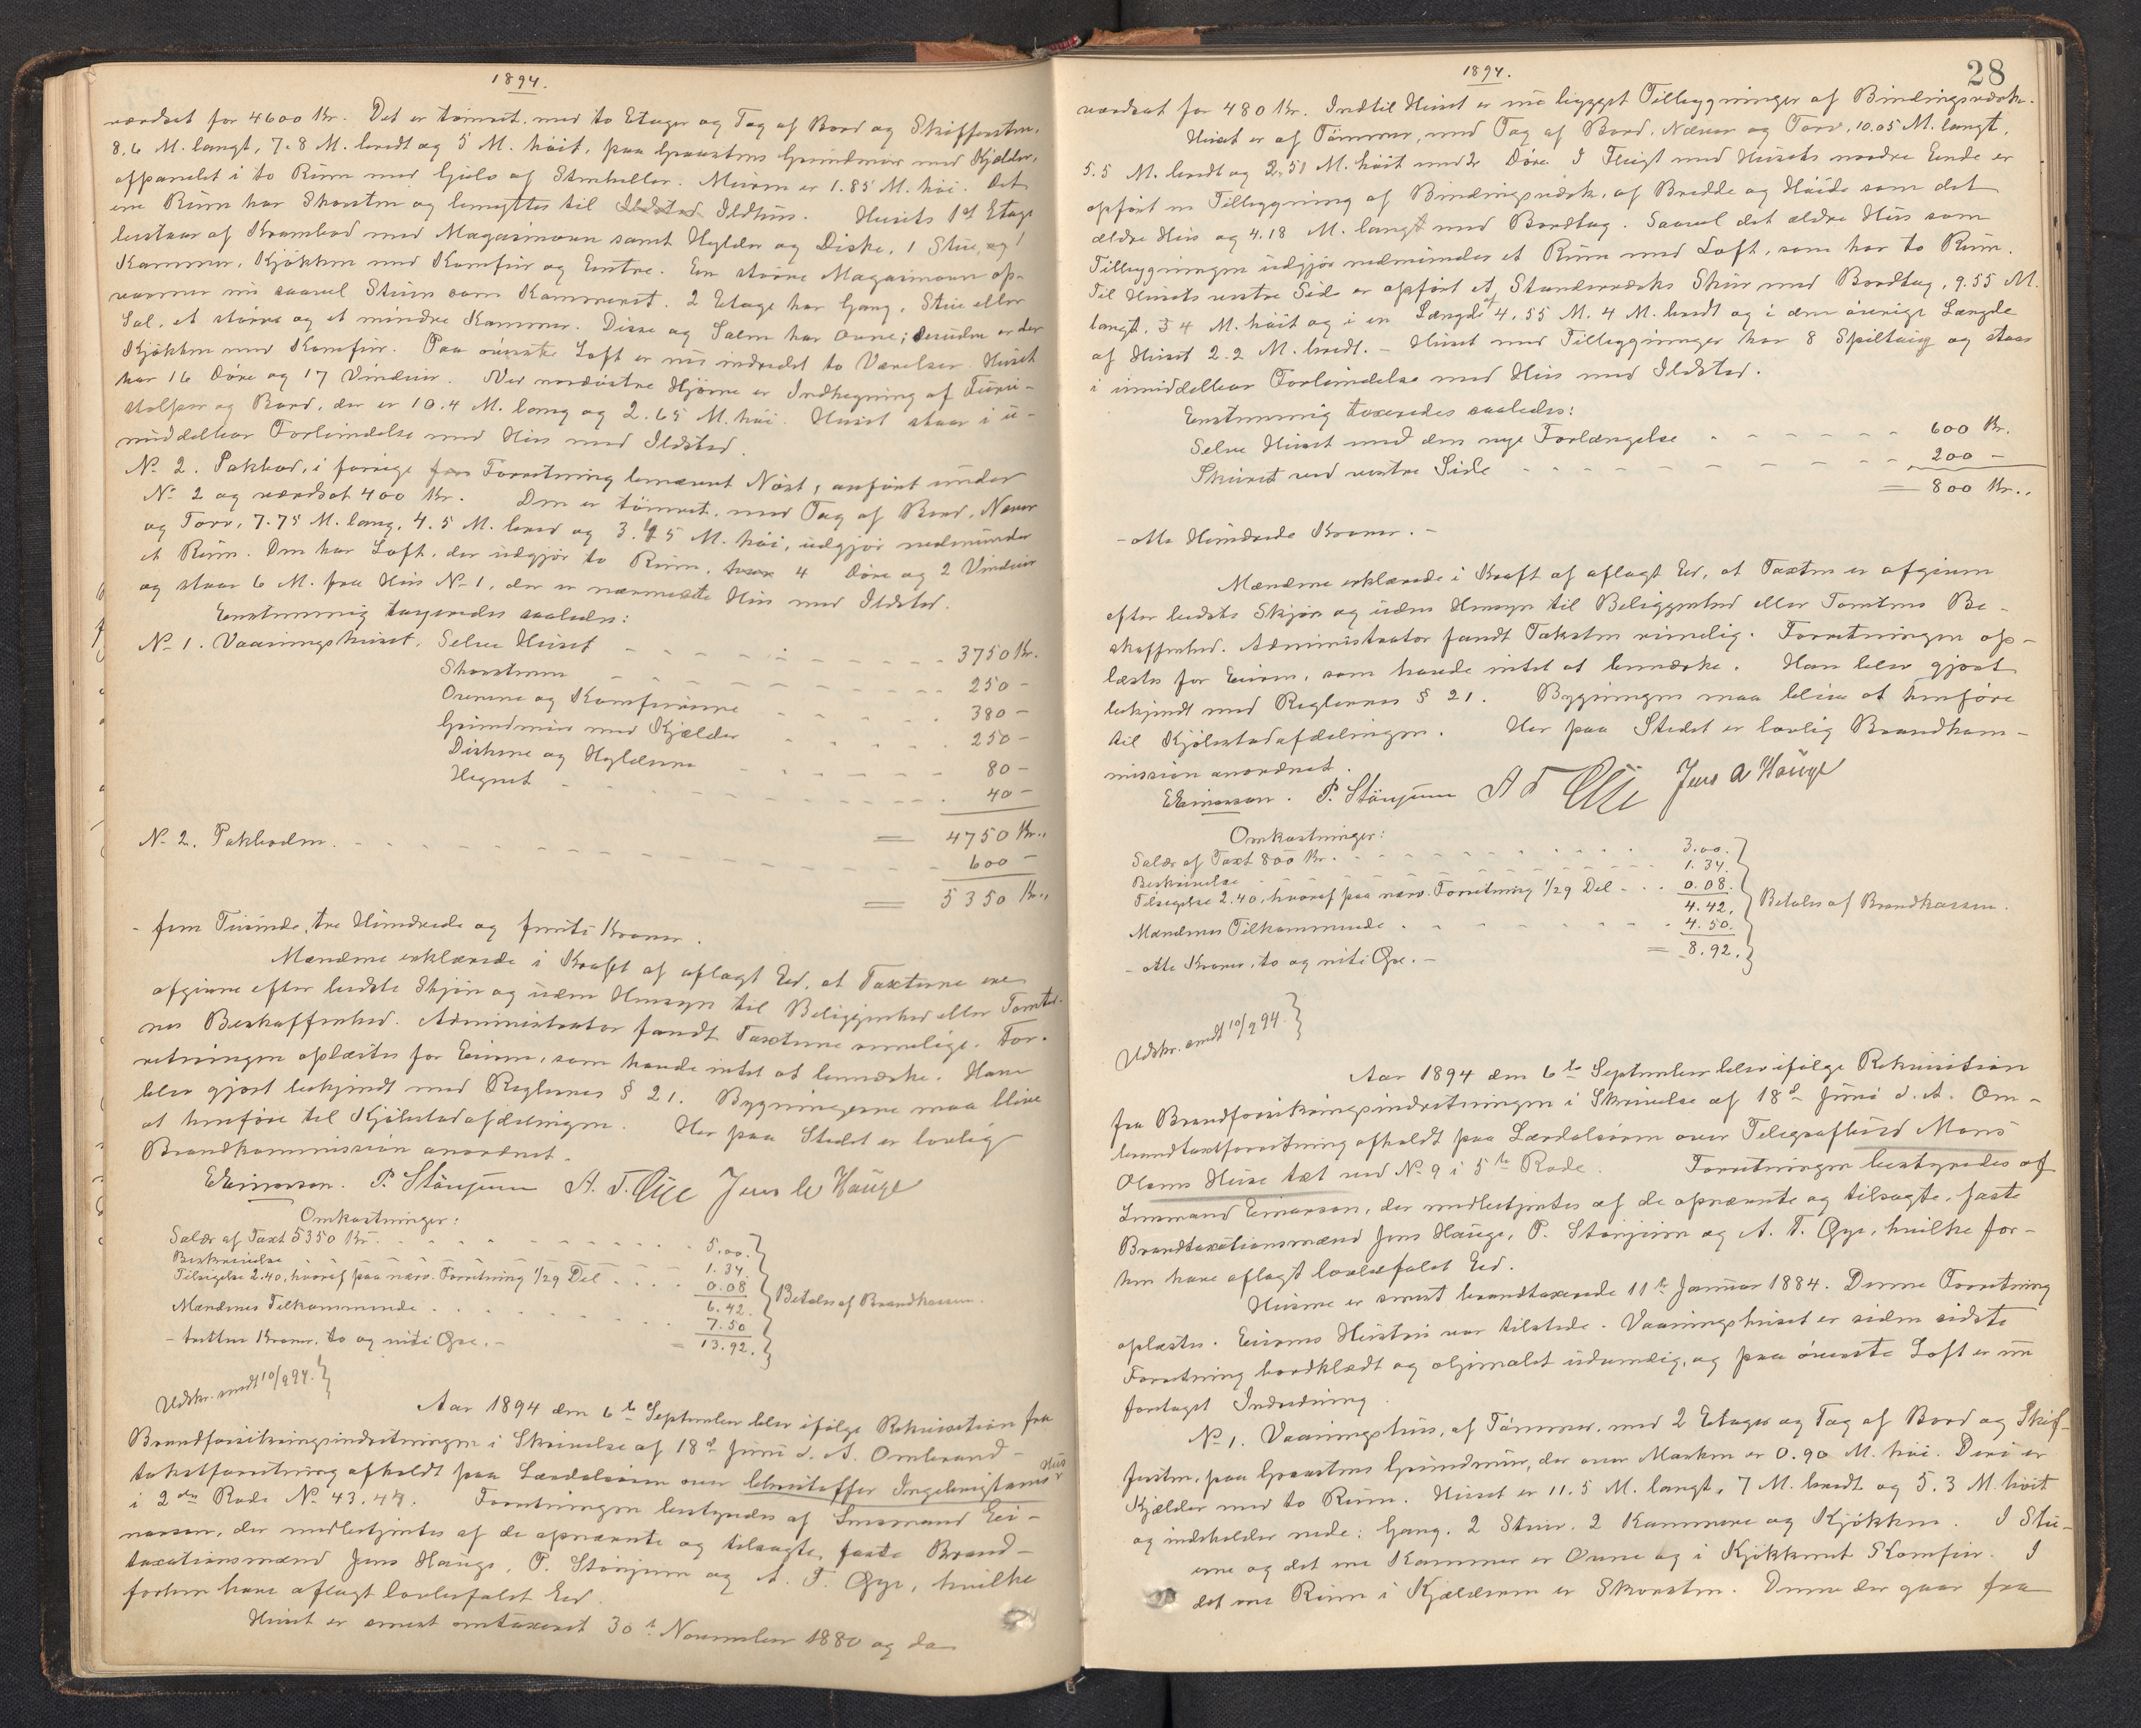 1894.
værdsat for 4600 Kr. Det er tømret, med to Etager og Tag af Bord og Skiffersten,
8.6 M. langt, 7.8 M. bredt og 5 M. höit, paa Graastens Grundmúr med Kjelder,
afpanelet i to Rúm med Gúlv af Stenheller. Múren er 1.85 M. höi. Det
ene Rúm har Skorsten og benyttes til Ildsted Ildhús. Húsets 1st Etage
bestaar af Krambod med Magasinovn samt Hylder og Diske, 1 Stúe, og 1
Kammer, Kjökken med Komfúr og Entre. En större Magasinovn op-
varmer nú saavel Stúen som Kammeret. 2 Etage har Gang, Stúe eller
Sal, et större og et mindre Kammer. Disse og Salen har Ovne; desúden er der
Kjökken med Komfúr. Paa överste Loft er nú indredet to Værelser. Húset
har 16 Döre og 17 Vindúer. Ved nordöstre Hjörne er Indhegning af Fúrú-
stolper og Bord, der er 10.4 M. lang og 2.65 M. höi. Húset staar i ú-
middelbar Forbindelse med Hús med Ildsted.
No 2. Pakbod, i forrige Forretning benævnt Nöst, anfört únder
No 2 og værdsat 400 Kr. Den er tömret, med Tag af Bord, Never
og Torv, 7.75 M. lang, 4.5 M. bred og 3. 5 M. höi, údgjör nedenúnder
et Rúm. Den har Loft, der údgjör to Rúm, 4 Döre og 2 Vindúer
og staar 6 M. fra Hús No 1, der er nærmeste Hús med Ildsted.
Eenstemmig taxeredes saaledes:
No 1. Vaaningshúset. Selve Húset 3750 Kr.
Skorstenen 250 -
Ovnene og Komfúrene 380 -
Grúndmúr med Kjælder 250 -
Diskene og Hylderne 80 -
Hegnet 40 -
= 4750 Kr.
No 2. Pakboden. 600 -
= 5350 Kr.
- fem Túsinde, tre Húndrede og femti Kroner.
Mændene erklærede i Kraft af aflagt Eed, at Taxterne ere
afgivne efter bedste Skjön og úden Hensyn til Beliggenhed eller Tomter-
nes Beskaffenhed. Administrator fandt Taxterne rimelige. For-
retningen oplæstes for Eieren, som havde intet at bemærke. Han
blev gjort bekjendt med Reglernes § 21. Bygningerne maa blive
at henföre til Kjöbstadafdelingen. Her paa Stedet er lovlig
Brandkommission anordnet.
E Einarsen. P. Stönjum A. T. Gje Jens A Haúge
Omkostninger:
Salær af Taxt 5350 Kr. 5.00.
Beskrivelse 1.34.
Tilsigelse 2.40, hvoraf paa nærv. Forretning 1/29 Del 0.08
6.42. Betales af Brandkassen.
Mændenes Tilkommende 7.50
- tretten Kroner, to og niti Öre. - = 13.92.
Udskr. sendt 10/9 94.
Aar 1894 den 6te September blev ifölge Rekvisition fra
Brandforsikringsindretningen i Skrivelse af 18de Júni d. A. Ombrand-
takstforretning afholdt paa Lærdalsören over Christoffer Ingebrigtsens Hús
i 2den Rode No 43.44. Forretningen bestyredes af Lensmand Ei-
narsen, der medbetjentes af de opnævnte og tilsagte, faste Brand-
taxationsmænd Jens Haúge, P. Stönjum og A. T. Gje, hvilke
forhen have aflagt lovbefalet Eed.
Húset er senest omtaxeret 30te November 1880 og da
1894.
28
værdsat for 480 Kr. Indtil Húset er nú bygget Tilbygninger af Bindingsværk.
Húset er af Tömmer, med Tag af Bord, Næver og Torv, 10.05 M. langt,
5.5 M. bredt og 2.51 M. höit med 2 Döre. I Flúgt med Húsets nordre Ende er
opfört en Tilbygning af Bindingsværk, af Bredde og Höide som det
ældre Hús og 4.18 M. langt med Bordtag. Saavel det ældre Hús som
Tilbygningen údgjör nedenúnder et Rúm med Loft, som har to Rúm.
Til Húsets vestre Side er opfört et Standerværks Skúr med Bordtag, 9.55 M.
langt, 3 4 M. höit og i en Længde af 4.55 M. 4 M. bredt og i den övrige Længde
af Húset 2.2 M. bredt. - Húset med Tilbygninger har 8 Spiltaúg og staar
i úmiddelbar Forbindelse med Hús med Ildsted.
Eenstemmig taxeredes saaledes:
Selve Húset med den nye Forlængelse 600 Kr.
Skúret ved vestre Side 200 -
= 800 Kr.
- otte Húndrede Kroner. -
Mændene erklærede i Kraft af aflagt Eed, at Taxten er afgiven
efter bedste Skjön og úden Hensyn til Beliggenhed eller Tomtens Be-
skaffenhed. Administrator fandt Taksten rimelig. Forretningen op-
læstes for Eieren, som havde intet at bemærke. Han blev gjort
bekjendt med Reglernes § 21. Bygningen maa blive at henföre
til Kjöbstadafdelingen. Her paa Stedet er lovlig Brandkom-
mission anordnet.
E Einarsen. P. Stönjum A T Gje Jens A Haúge
Omkostninger:
Salær af Taxt 800 Kr. 3.00.
Beskrivelse 1.34.
Tilsigelse 2.40, hvoraf paa nærv. Forretning 1/29 Del 0.08.
4.42. Betales af Brandkassen.
Mændenes Tilkommende 4.50.
- otte Kroner, to og niti Öre. - = 8.92.
Udskr. sendt 10/9 94.
Aar 1894 den 6te September blev ifölge Rekvisition
fra Brandforsikringsindretningen i Skrivelse af 18de Júni d. A. Om-
brandtaxtforretning afholdt paa Lærdalsören over Telegrafbúd Mons
Olsens Húse tæt ved No 9 i 5te Rode. Forretningen bestyredes af
Lensmand Einarsen, der medbetjentes af de opnævnte og tilsagte, faste
Brandtaxationsmænd Jens Haúge, P. Stönjum og A. T. Gje, hvilke for-
hen have aflagt lovbefalet Eed.
Húsene er senest brandtaxerede 11te Janúar 1884. Denne Forretning
oplæstes. Eierens Hústrú var tilstede. Vaaningshúset er siden sidste
Forretning bordklædt og oljemalet údvendig, og paa överste Loft er nú
foretaget Indredning.
No 1. Vaaningshús, af Tömmer, med 2 Etager og Tag af Bord og Skif-
fersten, paa Graastens Grúndmúr, der over Marken er 0.90 M. höi. Deri er
Kjælder med to Rúm. Húset er 11.5 M. langt, 7 M. bredt og 5.3 M. höit
og indeholder nede: Gang, 2 Stúer, 2 Kammere og Kjökken. I Stú-
erne og det ene Kammer er Ovne og i Kjökkenet Komfúr. I
det ene Rúm i Kjælderen er Skorsten. Denne der gaar fra